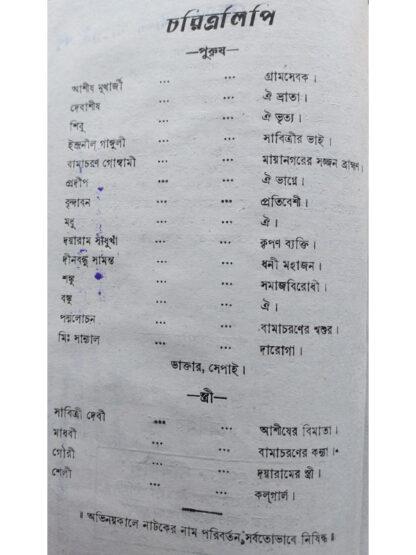 চরিত্রলিপি
—পুরুষ—
আশীষ মুখার্জী ... ... গ্রামসেবক।
দেবাশীষ ... ... ঐ ভ্রাতা।
শিবু ... ... ঐ ভৃত্য।
ইন্দ্রনীল গাঙ্গুলী ... ... সাবিত্রীর ভাই।
বামাচরণ গোস্বামী ... ... মায়ানগরের সজ্জন ব্রাহ্মণ।
প্রদীপ ... ... ঐ ভাগ্নে।
বৃন্দাবন ... ... প্রতিবেশী।
মধু ... ... ঐ।
দয়ারাম সাঁধুখাঁ ... ... কৃপণ ব্যক্তি।
দীনবন্ধু সামন্ত ... ... ধনী মহাজন।
শম্ভু ... ... সমাজবিরোধী।
বঙ্কু ... ... ঐ।
পদ্মলোচন ... ... বামাচরণের শ্বশুর।
মিঃ সান্যাল ... ... দারোগা।
ডাক্তার, সেপাই।
—স্ত্রী—
সাবিত্রী দেবী ... ... আশীষের বিমাতা।
মাধবী ... ... বামাচরণের কন্যা।
গৌরী ... ... দয়ারামের স্ত্রী।
শেলী ... ... কলগার্ল।
॥ অভিনয়কালে নাটকের নাম পরিবর্তন সর্বতোভাবে নিষিদ্ধ ॥